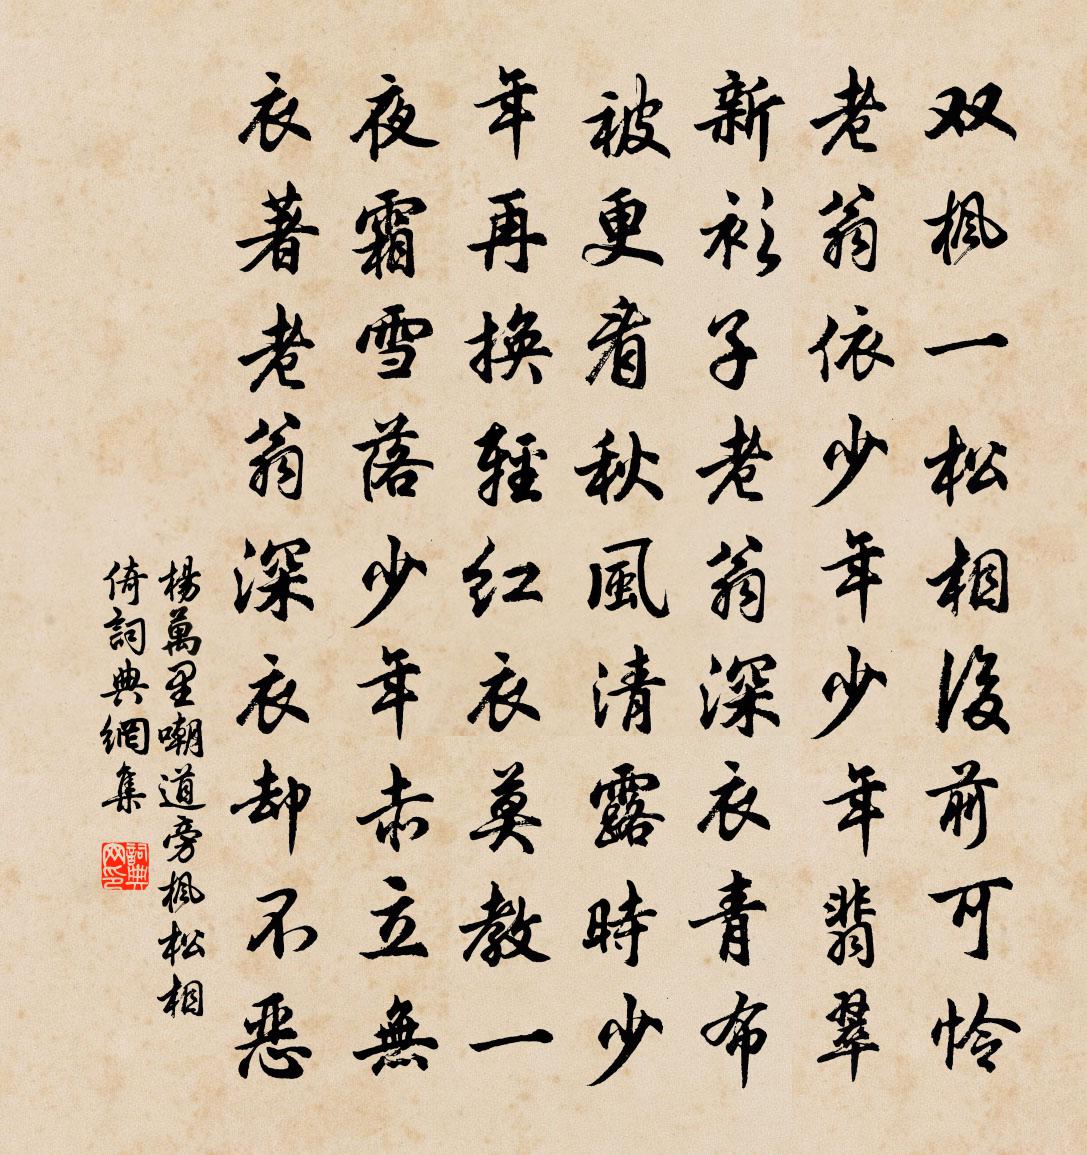 双枫一松相後前可怜
老翁依少年少年翡翠
新衫子老翁深衣青布
被更看秋風清露時少
年再換輕红衣莫教一
夜霜雪落少年赤立無
衣著老翁深衣却不恶
楊萬里嘲道旁枫松相
倚詞典網集
詞典网印